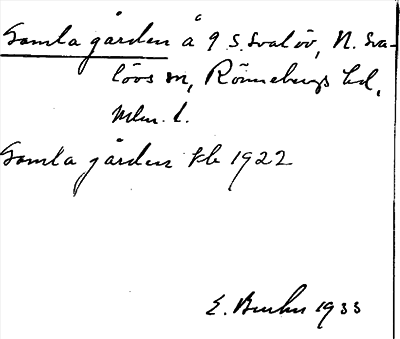 Gamla gården å 9 S. Svalöv, N. Sva-
lövs sn, Rönnebergs hd,
Mlm. l.
Gamla gården hb 1922
E. Bruhn 1933